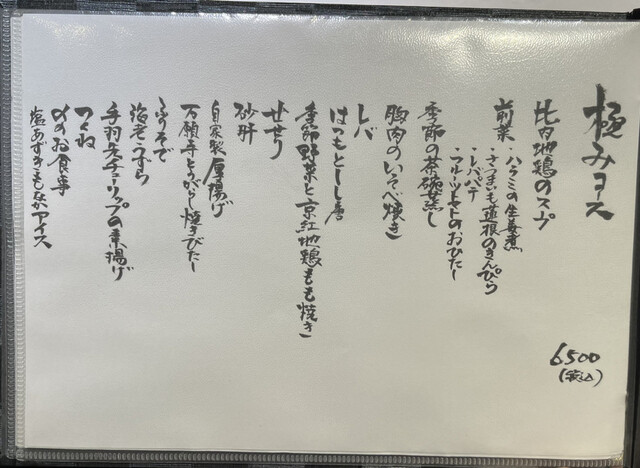 極みコース
比内地鶏のスープ
前菜・ハラミの生姜煮
・さつまいも蓮根のきんぴら
・レバパテ
・フルーツトマトのおひたし
季節の茶碗蒸し
胸肉のいそべ焼き
レバ
はつもとしし唐
季節野菜と京紅地鶏もも焼き
せせり
砂肝
自家製厚揚げ
万願寺とうがらし焼きびたし
ふりそで
海老うずら
手羽先チューリップの素揚げ
つくね
〆のお食事
塩あずきもなかアイス
6500
(税込)